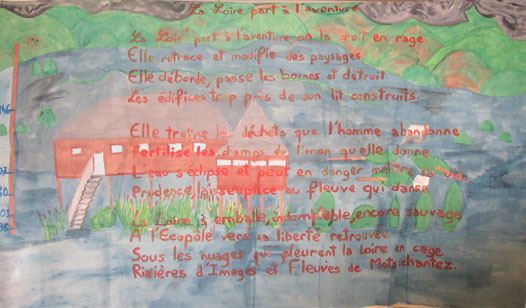 La Loire part à l'aventure
La Loir' part à l'aventure on la croit en rage
Elle retrace et modifie des paysages
Elle déborde, passe les bornes et détruit
Les édifices trop près de son lit construits.
Elle traîne les déchets que l'homme abandonne
Fertilise les champs du limon qu'elle donne
L'eau s'éclipse et peut en danger mettre la vie
Prudence laisse place au fleuve qui danse
La Loire s'emballe, indomptable, encore sauvage
A l'Ecopôle vers sa liberté retrouvée
Sous les nuages qui pleurent la Loire en cage
Rivières d'Images et Fleuves de Mots: chantez.